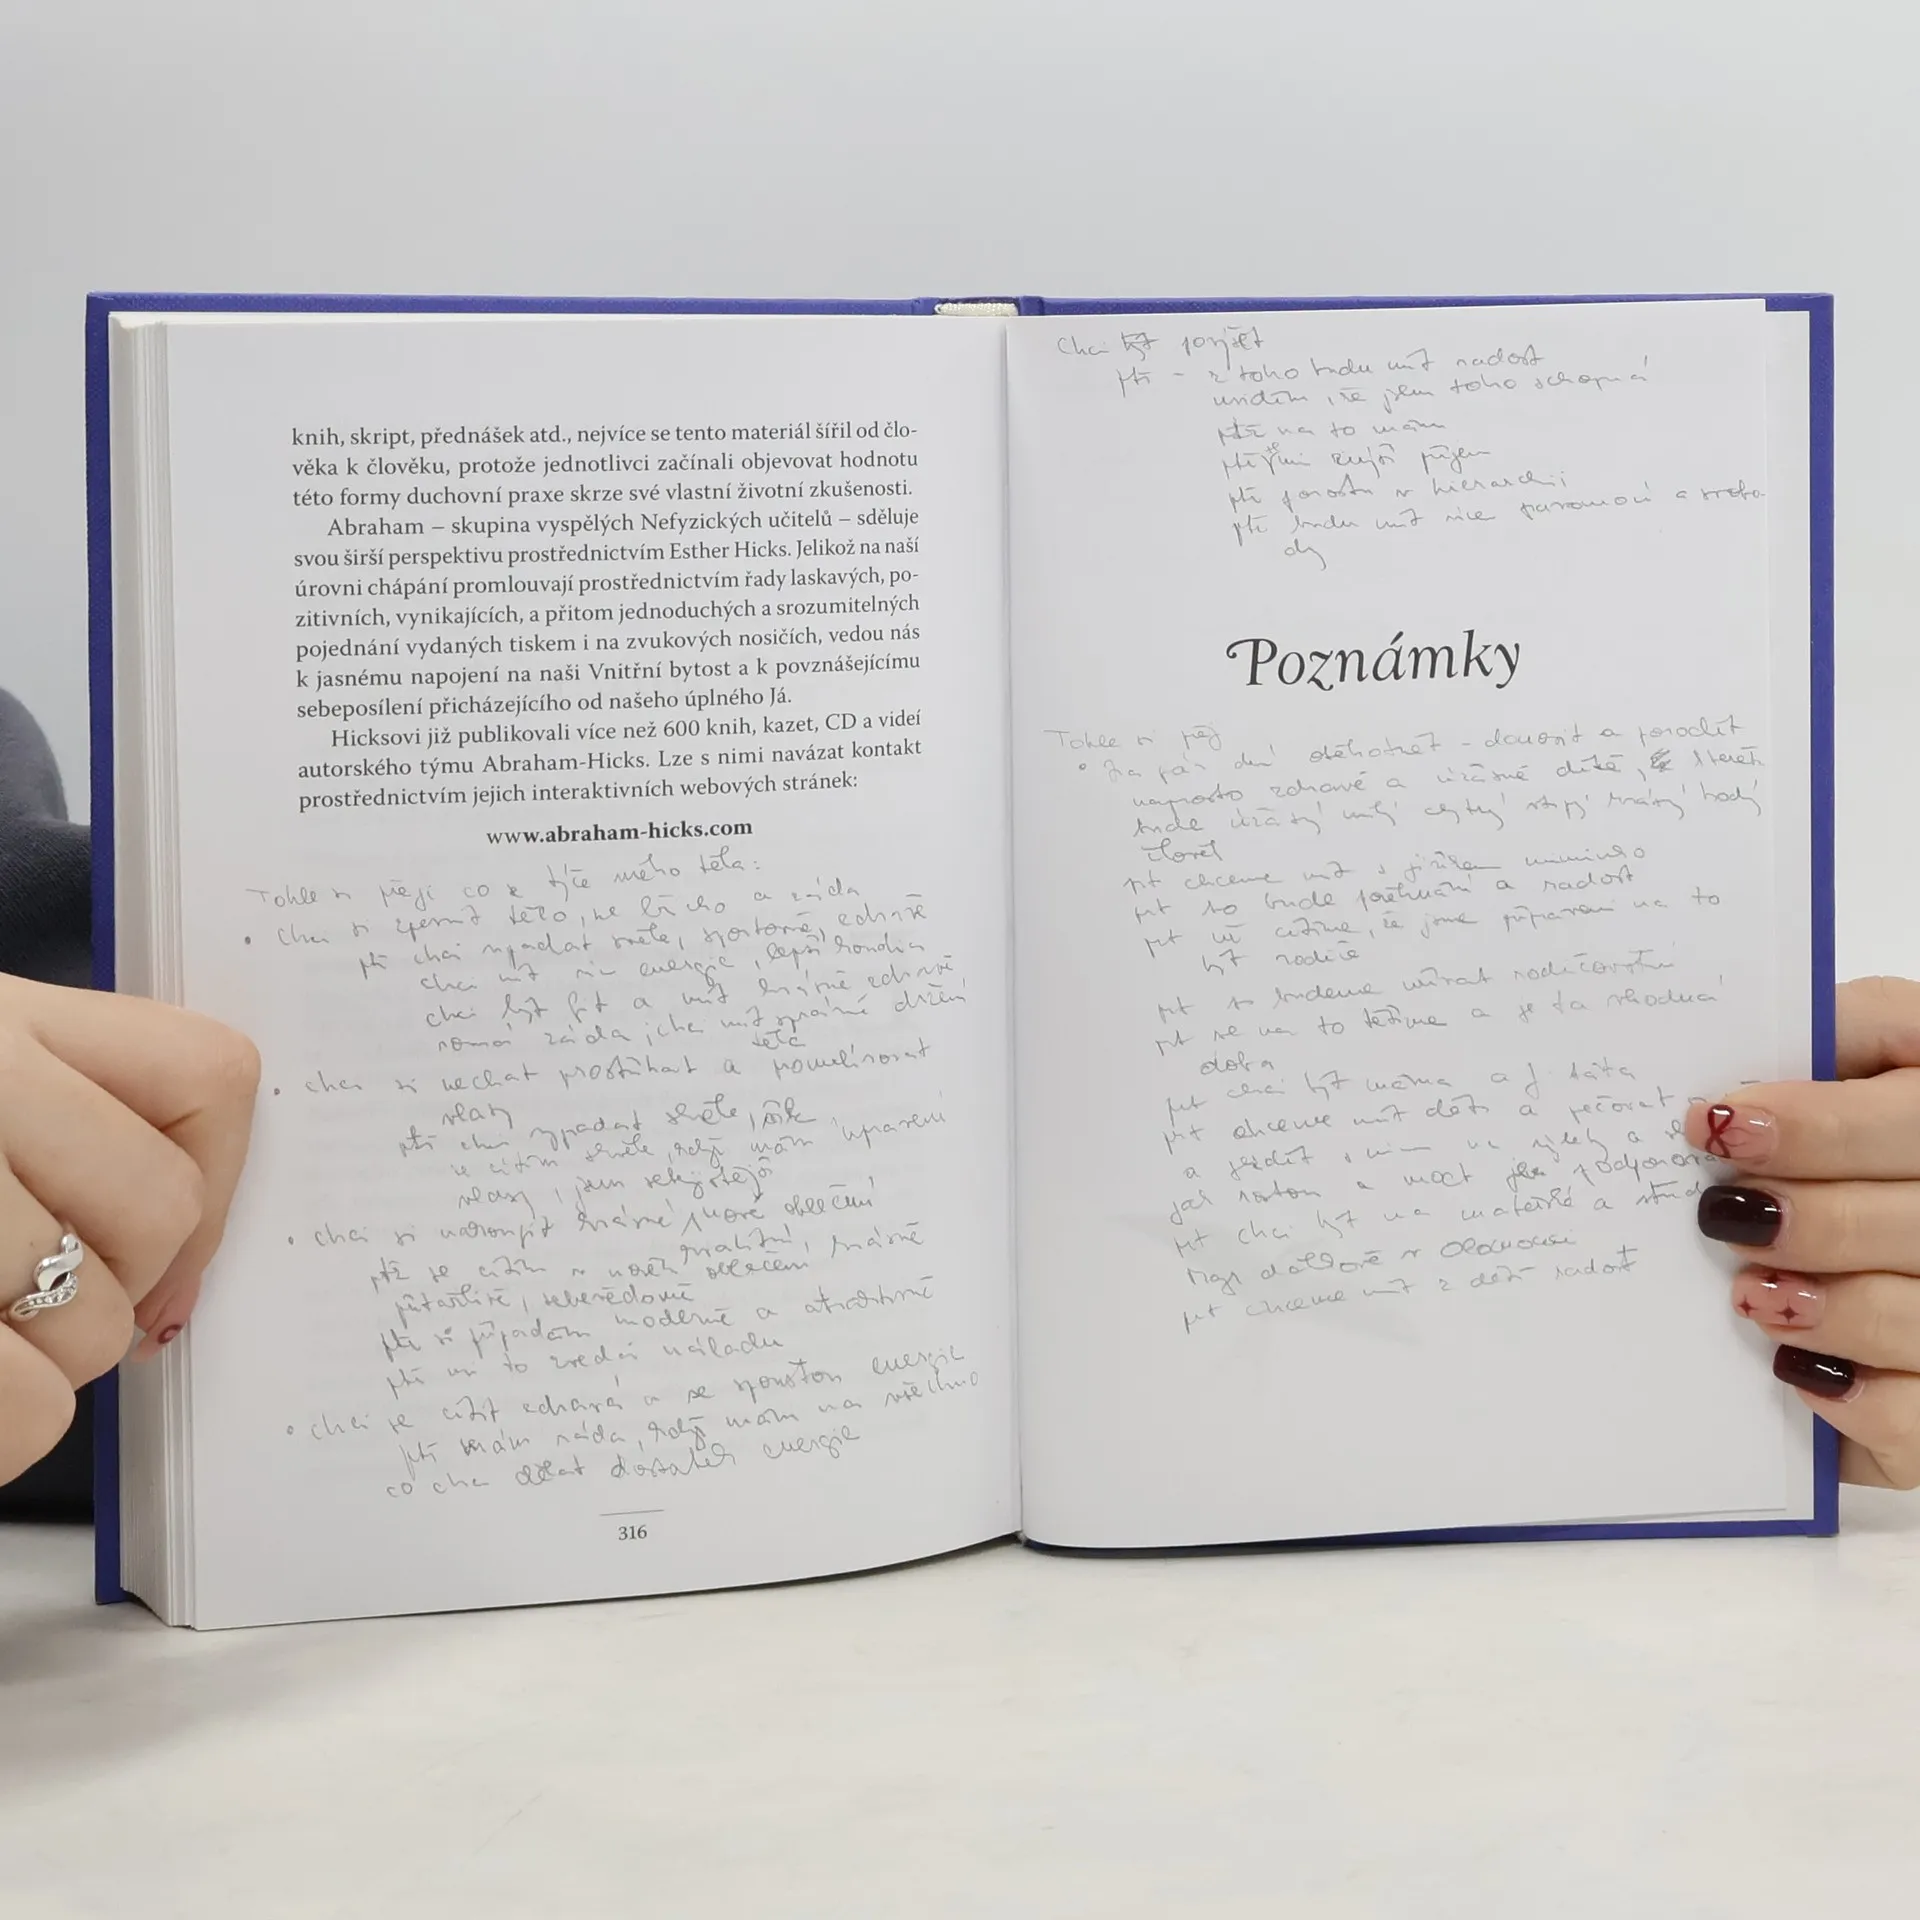 knih, skript, přednášek atd., nejvíce se tento materiál šířil od člo-
věka k člověku, protože jednotlivci začínali objevovat hodnotu
této formy duchovní praxe skrze své vlastní životní zkušenosti.
Abraham – skupina vyspělých Nefyzických učitelů – sděluje
svou širší perspektivu prostřednictvím Esther Hicks. Jelikož na naší
úrovni chápání promlouvají prostřednictvím řady laskavých, po-
zitivních, vynikajících, a přitom jednoduchých a srozumitelných
pojednání vydaných tiskem i na zvukových nosičích, vedou nás
k jasnému napojení na naši Vnitřní bytost a k povznášejícímu
sebeposílení přicházejícího od našeho úplného Já.
Hicksovi již publikovali více než 600 knih, kazet, CD a videí
autorského týmu Abraham-Hicks. Lze s nimi navázat kontakt
prostřednictvím jejich interaktivních webových stránek:
www.abraham-hicks.com
Tohle si přeji co se týče mého těla:
• Chci si zpevnit tělo, břicho a záda
chci vypadat skvěle, sportovně, zdravě
chci mít víc energie, lepší kondici
chci být fit a mít krásné zdravé
rovná záda, chci mít správné držení
těla
• chci si nechat prostříhat a pomelírovat
vlasy
chci vypadat skvěle,
se cítím skvěle, když mám upravení
vlasy, jsem
• chci si nakoupit krásné nové oblečení
kvalitní
se cítím v novém oblečení krásně
přitažlivě, sebevědomě
si připadám moderně a atraktivně
mi to zvedá náladu
• chci se cítit zdravá a se spoustou energie
mám ráda, když mám na všechno
co chci dělat dostatek energie
316
Chci povýšit
- z toho budu mít radost
uvidím, že jsem toho schopná
na to mám
zvýší příjem
porostu v hierarchii
budu mít více pravomocí a svobo-
dy
Poznámky
Tohle si přeji
• Za pár dní otěhotnět - donosit a porodit
naprosto zdravé a úžasné dítě, které
bude úžasný milý chytrý krásný hodný
člověk
chceme mít s miminko
to bude požehnání a radost
už cítíme, že jsme připraveni na to
být rodiče
si budeme užívat rodičovství
se na to těšíme a je ta vhodná
doba
chci být máma a J táta
chceme mít děti a pečovat
a jezdit s nimi na výlety a
jak rostou a moct je podporova
chci být na mateřské a stud
Mgr dálkově v Olomouci
chceme mít z dětí radost